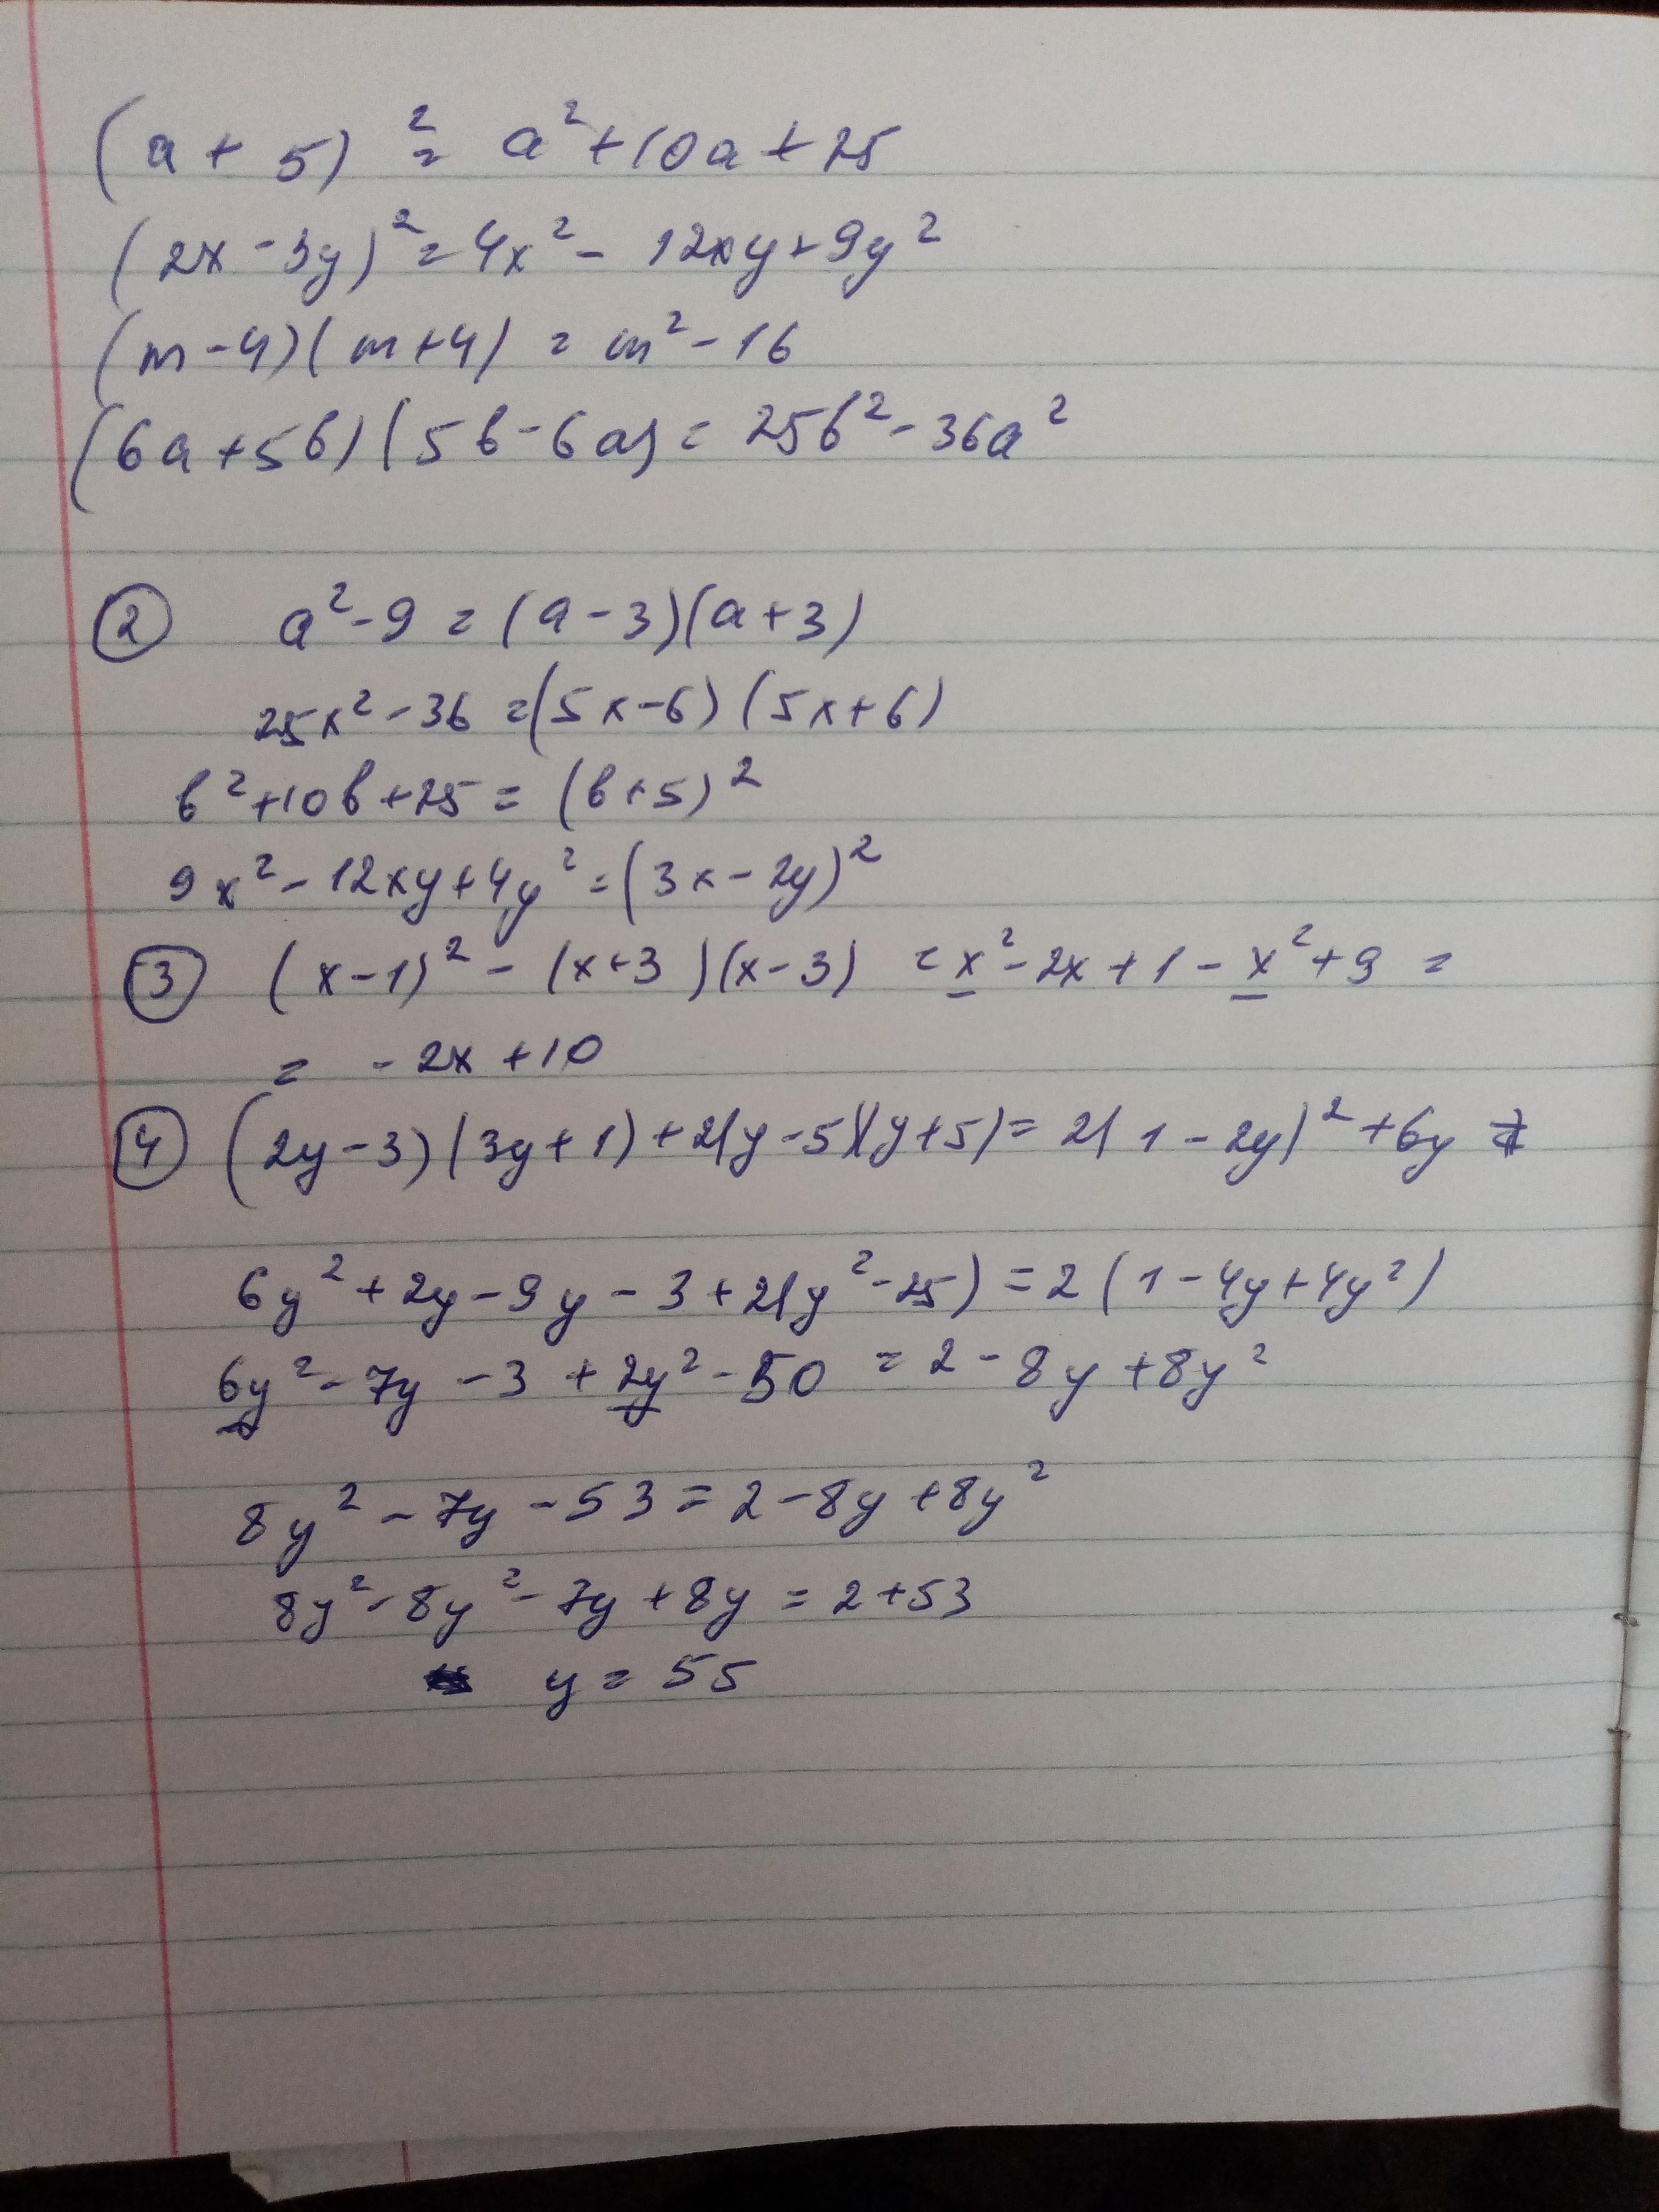 (a + 5)² = a² + 10a + 25
(2x - 3y)² = 4x² - 12xy + 9y²
(m - 4)(m + 4) = m² - 16
(6a + 5b)(5b - 6a) = 25b² - 36a²
② a² - 9 = (a - 3)(a + 3)
25x² - 36 = (5x - 6)(5x + 6)
b² + 10b + 25 = (b + 5)²
9x² - 12xy + 4y² = (3x - 2y)²
③ (x - 1)² - (x + 3)(x - 3) = x² - 2x + 1 - x² + 9 =
= - 2x + 10
④ (2y - 3)(3y + 1) + 2(y - 5)(y + 5) = 2(1 - 2y)² + 6y
6y² + 2y - 9y - 3 + 2(y² - 25) = 2(1 - 4y + 4y²)
6y² - 7y - 3 + 2y² - 50 = 2 - 8y + 8y²
8y² - 7y - 53 = 2 - 8y + 8y²
8y² - 8y² - 7y + 8y = 2 + 53
y = 55